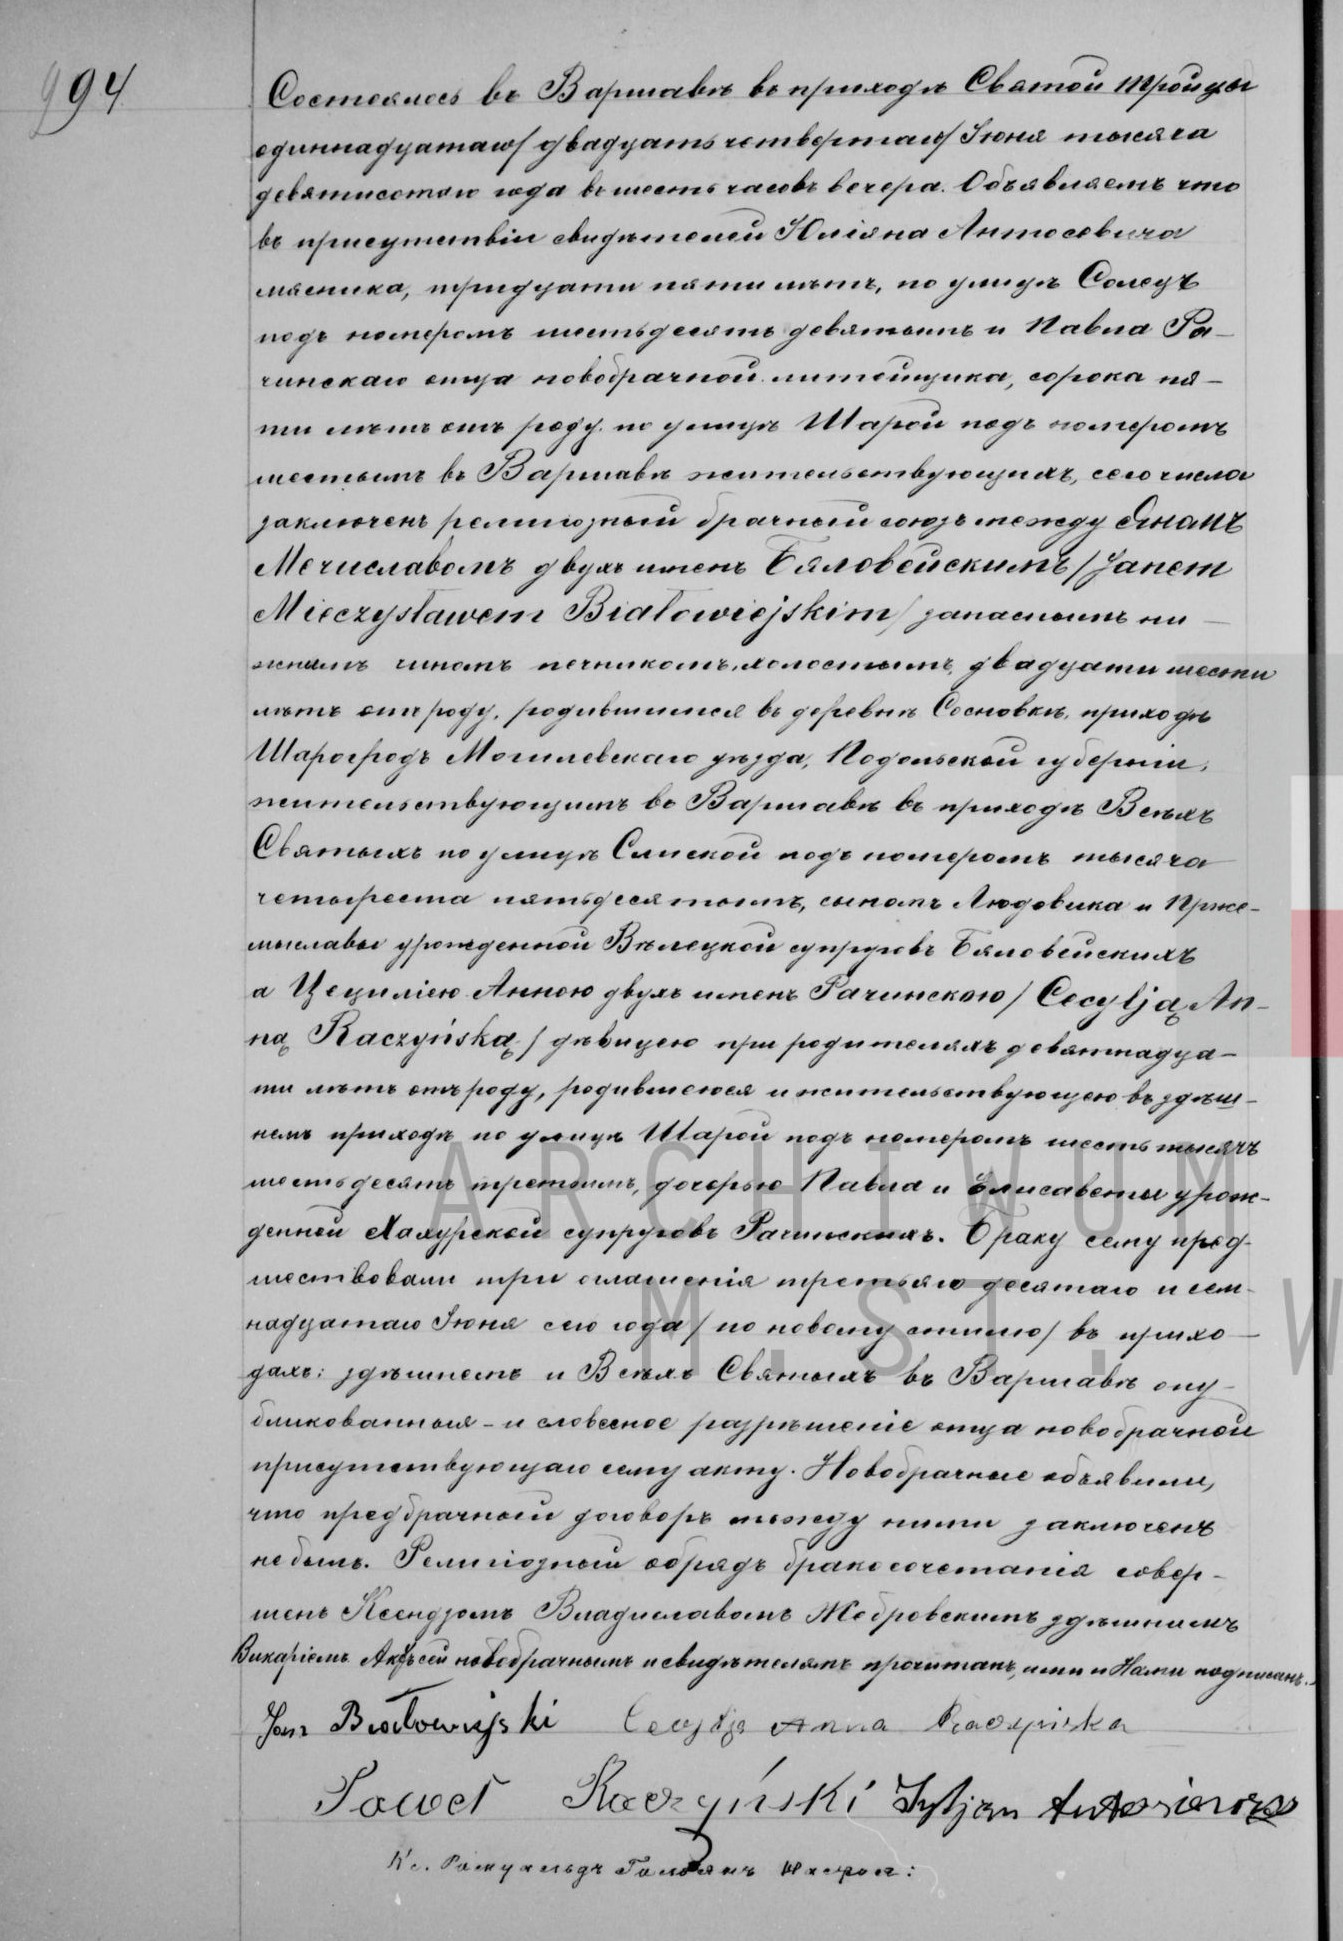 994
Состоялось въ Варшавѣ въ приходѣ Святой Тройцы
одиннадцатаго/двадцать четвертаго/ Іюня тысяча
девятисотаго года въ шесть часовъ вечера. Объявляемъ что
въ присутствіи свидѣтелей Юліяна Антосевича
мясника, тридцати пяти лѣтъ, по улицѣ Солецъ
подъ номеромъ шестьдесятъ девятымъ и Павла Ра-
чинскаго отца новобрачной литейщика, сорока пя-
ти лѣтъ отъ роду по улицѣ Шарой подъ номеромъ
шестымъ въ Варшавѣ жительствующихъ, сего числа
заключенъ религіозный брачный союзъ между Яномъ
Мечиславомъ двухъ именъ Бяловейскимъ/Janem
Mieczysławem Białowiejskim/ запаснымъ ни-
жнимъ чиномъ печникомъ, холостымъ, двадцати шести
лѣтъ отъ роду, родившимся въ деревнѣ Сосновкѣ, приходѣ
Шарогродъ Могилевскаго уѣзда, Подольской губерніи,
жительствующимъ въ Варшавѣ въ приходѣ Всѣхъ
Святыхъ по улицѣ Слиской подъ номеромъ тысяча
четыреста пятьдесятымъ, сыномъ Людовика и Прже-
мыславы урожденной Вѣлецкой супруговъ Бяловейскихъ
а Цецилією Анною двухъ именъ Рачинскою/Cecylją An-
ną Raczyńską/ дѣвицею при родителяхъ девятнадца-
ти лѣтъ отъ роду, родившеюся и жительствующею въ здѣш-
немъ приходѣ по улицѣ Шарой подъ номеромъ шесть тысячъ
шестьдесятъ третьимъ, дочерью Павла и Елисаветы урож-
денной супруговъ Рачинскихъ. Браку сему пред-
шествовали три оглашенія третьяго десятаго и сем-
надцатаго Іюня сего года/по новому стилю/ въ прихо-
дахъ: здѣшнемъ и Всѣхъ Святыхъ въ Варшавѣ опу-
бликованныя - и словесное разрѣшеніе отца новобрачной
присутствующаго сему акту. Новобрачные объявили,
что предбрачный договоръ между ними заключенъ
не былъ. Религіозный обрядъ бракосочетанія совер-
шенъ Ксендзомъ Владиславомъ Жебровскимъ здѣшнимъ
Викаріемъ Актъ сей новобрачнымъ и свидѣтелямъ прочитанъ, ими и Нами подписанъ.
Jan Białowiejski Cecylja Anna Raczyńska
Paweł Raczyński Juljan Antosiewicz
Кс. Ромуальдъ
ARCHIWUM
M. ST. W